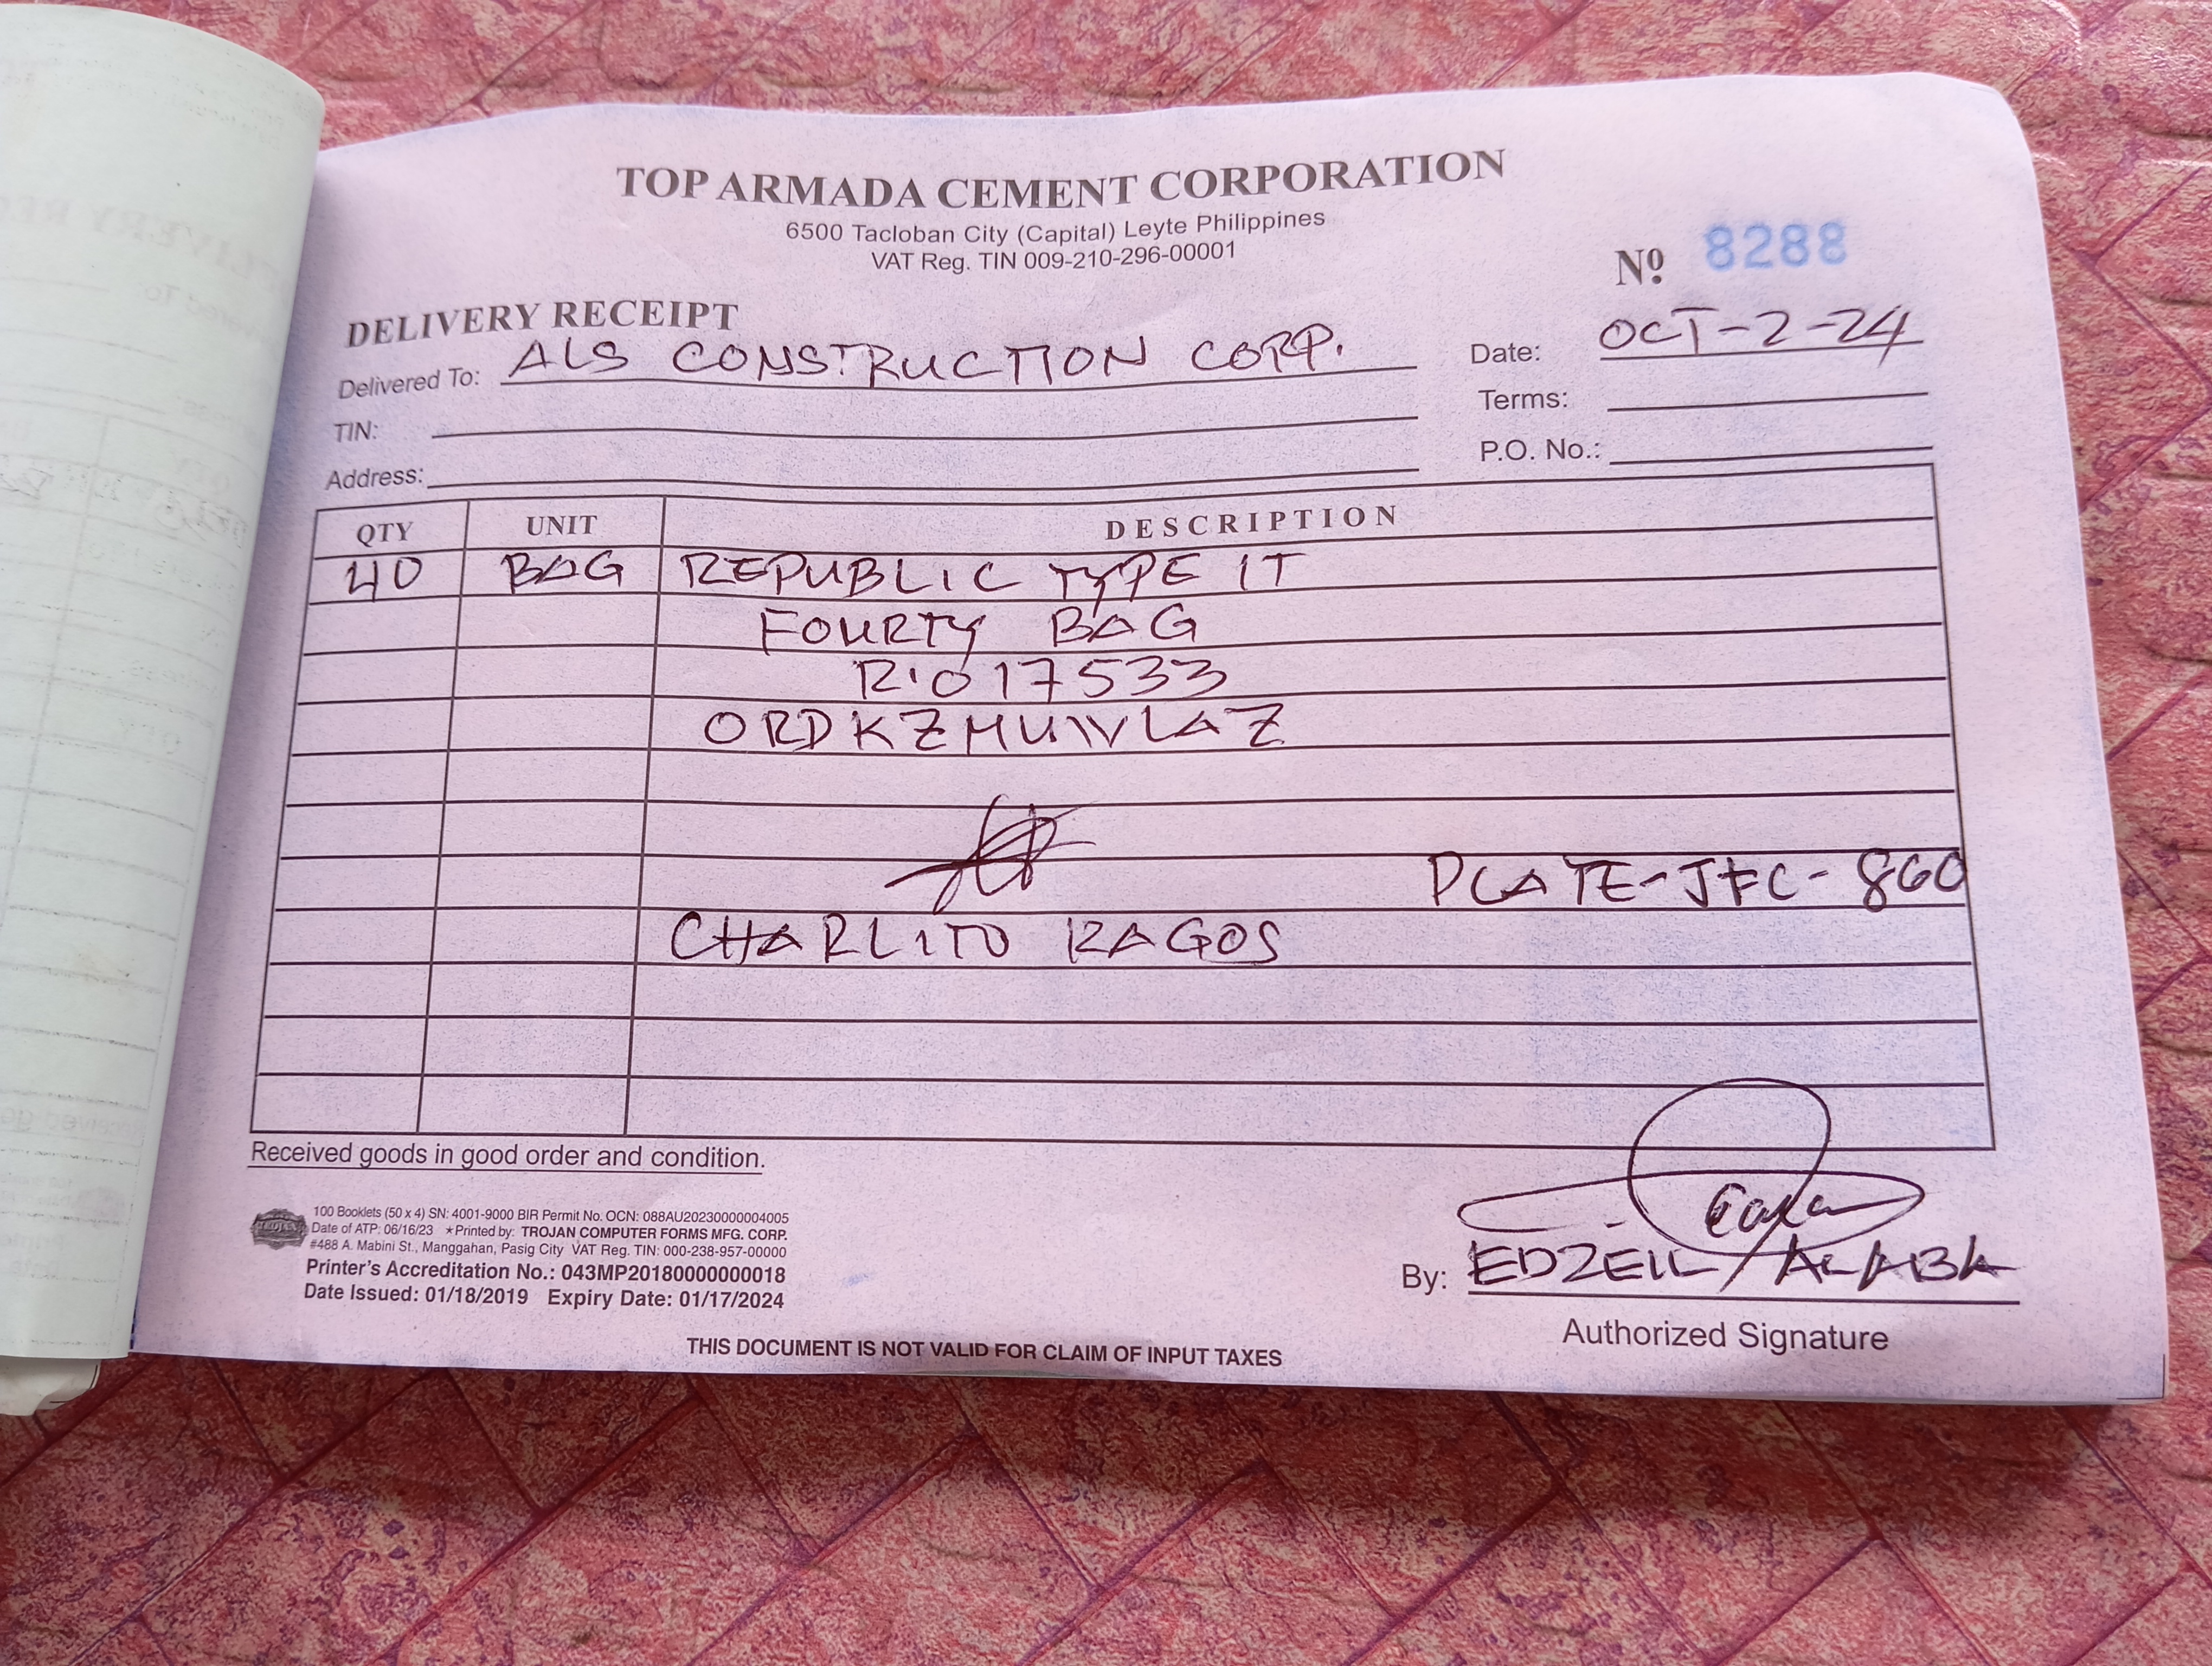 TOP ARMADA CEMENT CORPORATION
6500 Tacloban City (Capital) Leyte Philippines
VAT Reg. TIN 009-210-296-00001
Nº 8288
DELIVERY RECEIPT
Delivered To: ALS CONSTRUCTION CORP.
Date: OCT-2-24
TIN:
Terms:
Address:
P.O. No.:
QTY UNIT DESCRIPTION
40 BAG REPUBLIC TYPE IT
FOURTY BAG
R.017533
ORDKZMUWLAZ
PLATE-JFC-860
CHARLITO RAGOS
Received goods in good order and condition.
100 Booklets (50 x 4) SN: 4001-9000 BIR Permit No. OCN: 088AU20230000004005
Date of ATP: 06/16/23 *Printed by: TROJAN COMPUTER FORMS MFG. CORP.
#488 A. Mabini St., Manggahan, Pasig City VAT Reg. TIN: 000-238-957-00000
Printer's Accreditation No.: 043MP20180000000018
Date Issued: 01/18/2019 Expiry Date: 01/17/2024
By: EDZEIL ALABA
Authorized Signature
THIS DOCUMENT IS NOT VALID FOR CLAIM OF INPUT TAXES